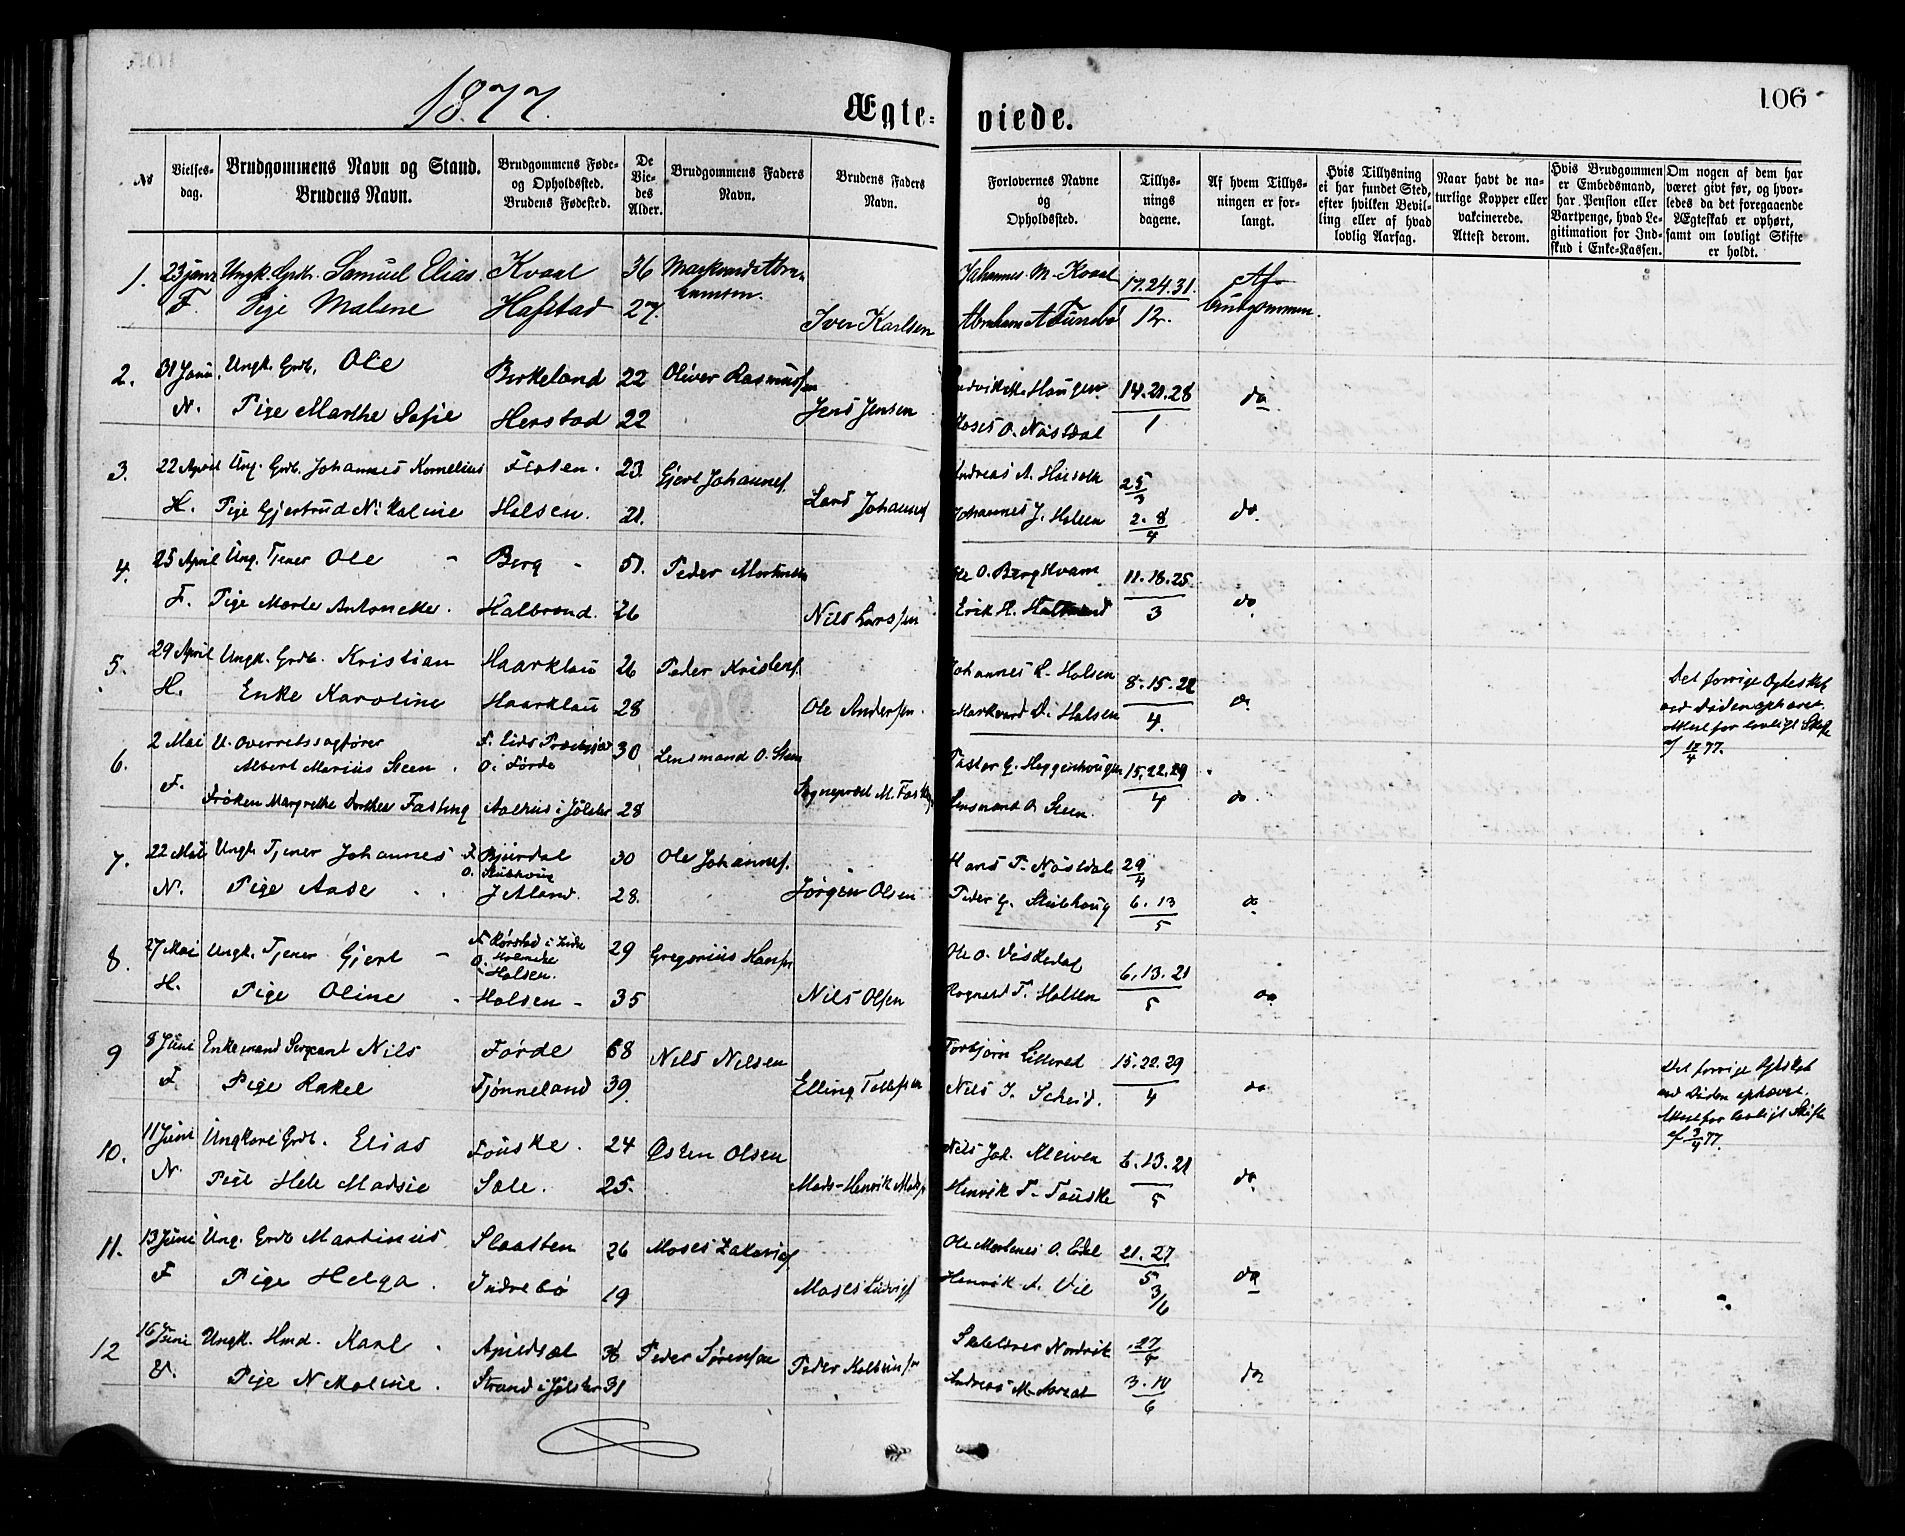 1877.
Ægte-
viede.
106
No
Vielses-
dag.
Brudgommens Navn og Stand.
Brudens Navn.
Brudgommens Føde-
og Opholdssted.
Brudens Fødested.
De
Vie-
des
Alder.
Brudgommens Faders
Navn.
Brudens Faders
Navn.
Forlovernes Navne
og
Opholdssted.
Tillys-
nings
dagene.
Af hvem Tillys-
ningen er for-
langt.
Hvis Tillysning
ei har fundet Sted,
efter hvilken Bevil-
ling eller af hvad
lovlig Aarsag.
Naar havt de na-
turlige Kopper eller
vakcinerede.
Attest derom.
Hvis Brudgommen
er Embedsmand,
har Pension eller
Vartpenge, hvad Le-
gitimation for Ind-
skud i Enke-Kassen.
Om nogen af dem har
været givt før, og hvor-
ledes da det foregaaende
Ægteskab er ophørt,
samt om lovligt Skifte
er holdt.
1. 23 janr Ungk. Grdb. Samuel Elias Kvaal 36 Markvard Abra- Johannes M. Kvaal 17.24.31. Af
hamsen.
F. Pige Malene Hafstad 27. Iver Karlsen Abraham A 12. brudgommen.
2. 31 Janu. Ungk. Grdb. Ole Birkeland 22 Oliver Rasmussen Haugen 14.21.28 do
N. Pige Marthe Sofie Herstad 22 Jens Jensen Moses O. Nåsdal 1
3. 22 April Ung. Grdb. Johannes Kornelius 23. Gjert Johannes. Andreas A. 25/3
H. Pige Gjertrud Nikoline Holsen. 21. Lars Johannes Johannes J. Holsen 2.8/4 do
4. 25 April Ung. Tjener Ole - Berg - 51. Peder Ole O. Berg Kvam 11.18.25
F. Pige Marte Antonette. Halbrend. 26 Nils Larssen Erik H. Halbrend 3 do
5. 29 April Ungk. Grdb. Kristian Haarklau 26 Peder Kristens. Johannes L. Holsen 8.15.22 Det forrige Egteskab
H. Enke Karoline Haarklau 28 Ole Anderssen. Markvard A. Holsen 4. do ved Døden ophævet.
Attest for lovligt Skifte
af 12/4 77.
6. 2 Mai U. Overretssagfører F. Eids Præstegjæld 30 Lensmand O. Steen Pastor G. Heggenhougen 15.22.29
Albert Marius Steen. O. i Førde
F. Frøken Margrethe Dorthea Fasting Aalhus i Jølster 28 Sogneprest M. Fasting Lensmand O. Steen. 4 do
7. 22 Mai Ungk. Tjener Johannes F. Bjurdal 30 Ole Johannes. Hans P. Nåsdal 29/4
N. Pige Aase Jetland. 28. Jørgen Olsen Peder G. 6.13/5 do
8. 27 Mai Ungk. Tjener Gjert - F. 29 Gregorius Hansen Ole O. 6.13.21
O.
Holsen.
H. Pige Oline Holsen - 35 Nils Olsen Ragnald T. Holsen 5 do
9 8 Juni Enkemand Sergeant Nils Førde 68 Nils Nilsen Torbjørn 15.22.29 Det forrige Egteskab
F. Pige Rakel Tjønneland 39. Elling Nils J. Scheid. 4 do ved Døden ophævet.
Attest for lovligt Skifte
af 3/4 77.
10. 11 Juni Ungkarl Grdb. Elias Fouske. 24 Østen Olsen Nils Joh. Kleiven 6.13.21
N Pige Hele Madsie Sole. 25. Mads-Henrik Mads. Henrik P. Fouske 5 do
11. 13 Juni Ung. Grdb Martinius Slaatten 26 Moses Zakarias. Ole Martenes O. 21.27/5
F Pige Helga. Indrebø 19 Moses Ludvigs Henrik A. Vie 3/6 do
12 16 Juni Ungk. Hmd. Karl Apildsæt 36 Peder Sørensen Nordvik 27/5
V. Pige Nikoline. Strand i Jølster 31 Peder Kolbeinsen Andreas M. 3.10/6 do